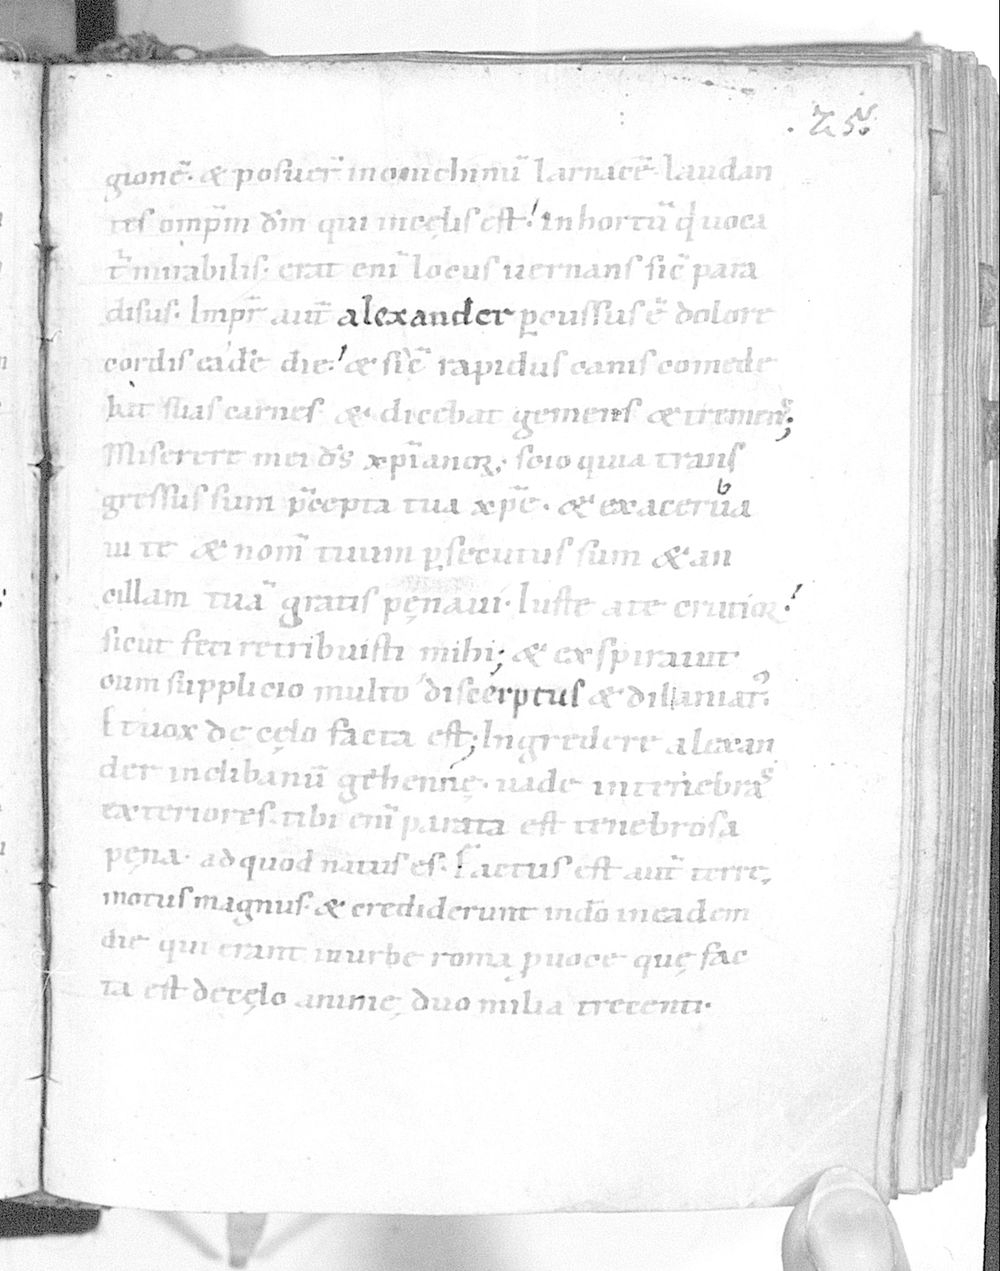 .25.
gionē. & posuer̄ inonichinū larnacē. laudan
tes omp̄m dm̄ qui incęlis est. Inhortū q̇ uoca
t̄ mirabilis. erat enī locus uernans sic̄ para
disus. Imp̄r aut̄ alexander ꝑcussus ē dolore
cordis eadē die. & sic̄ rapidus canis comede
bat suas carnes & dicebat gemens & tremens;
Miserere mei d̄s xp̄ianoꝝ. scio quia trans
gressus sum p̄cepta tua xp̄e. & exacerba
ui te & nom̄ tuum ꝑsecutus sum & an
cillam tuā gratis pęnaui. Iuste a te crucioꝛ.
sicut feci retribuisti mihi; & exspirauit
cum supplicio multo discerptus & dillaniatꝰ.
Et uox de cęlo facta est; Ingredere alexan
der inclibanū gehennę. uade intenebras
exteriores. tibi enī parata est tenebrosa
pęna. ad quod natus es. Factus est aut̄ terrę
motus magnus. & crediderunt indō ineadem
die qui erant inurbe roma ꝑ uoce quę fac
ta est decęlo animę duo milia trecenti.